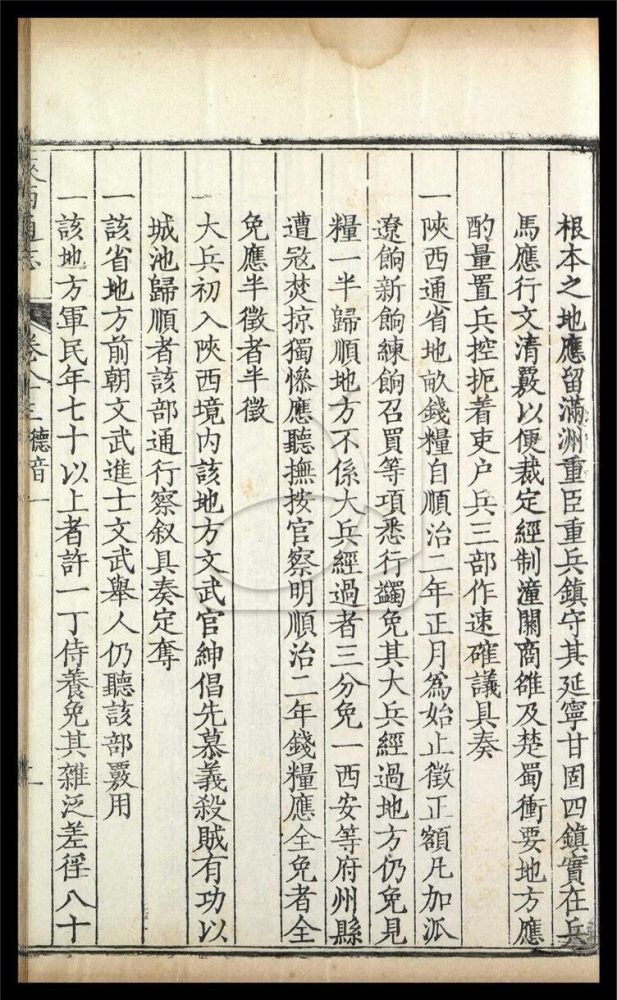 根本之地應留滿洲重臣重兵鎮守其延寧甘固四鎮實在兵
馬應行文清覈以便裁定經制潼關商雒及楚蜀衝要地方應
酌量置兵控扼着吏户兵三部作速確議具奏
一陝西通省地畝錢糧自順治二年正月爲始止徵正額凡加派
遼餉新餉練餉召買等項悉行蠲免其大兵經過地方仍免見
糧一半歸順地方不係大兵經過者三分免一西安等府州縣
遭冦焚掠獨慘應聽撫按官察明順治二年錢糧應全免者全
免應半徵者半徵
一大兵初入陝西境内該地方文武官紳倡先慕義殺賊有功以
城池歸順者該部通行察叙具奏定奪
一該省地方前朝文武進士文武舉人仍聽該部覈用
一該地方軍民年七十以上者許一丁侍養免其雜泛差徭八十
陝西通志 卷八十三 德音一